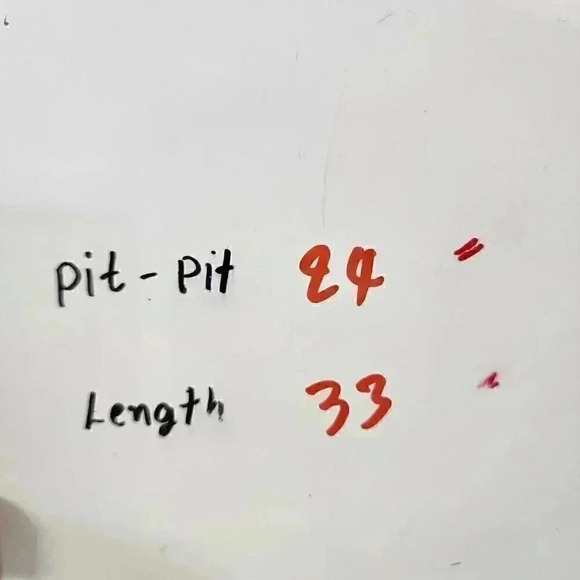 Pit - Pit 24 "
Length 33 "